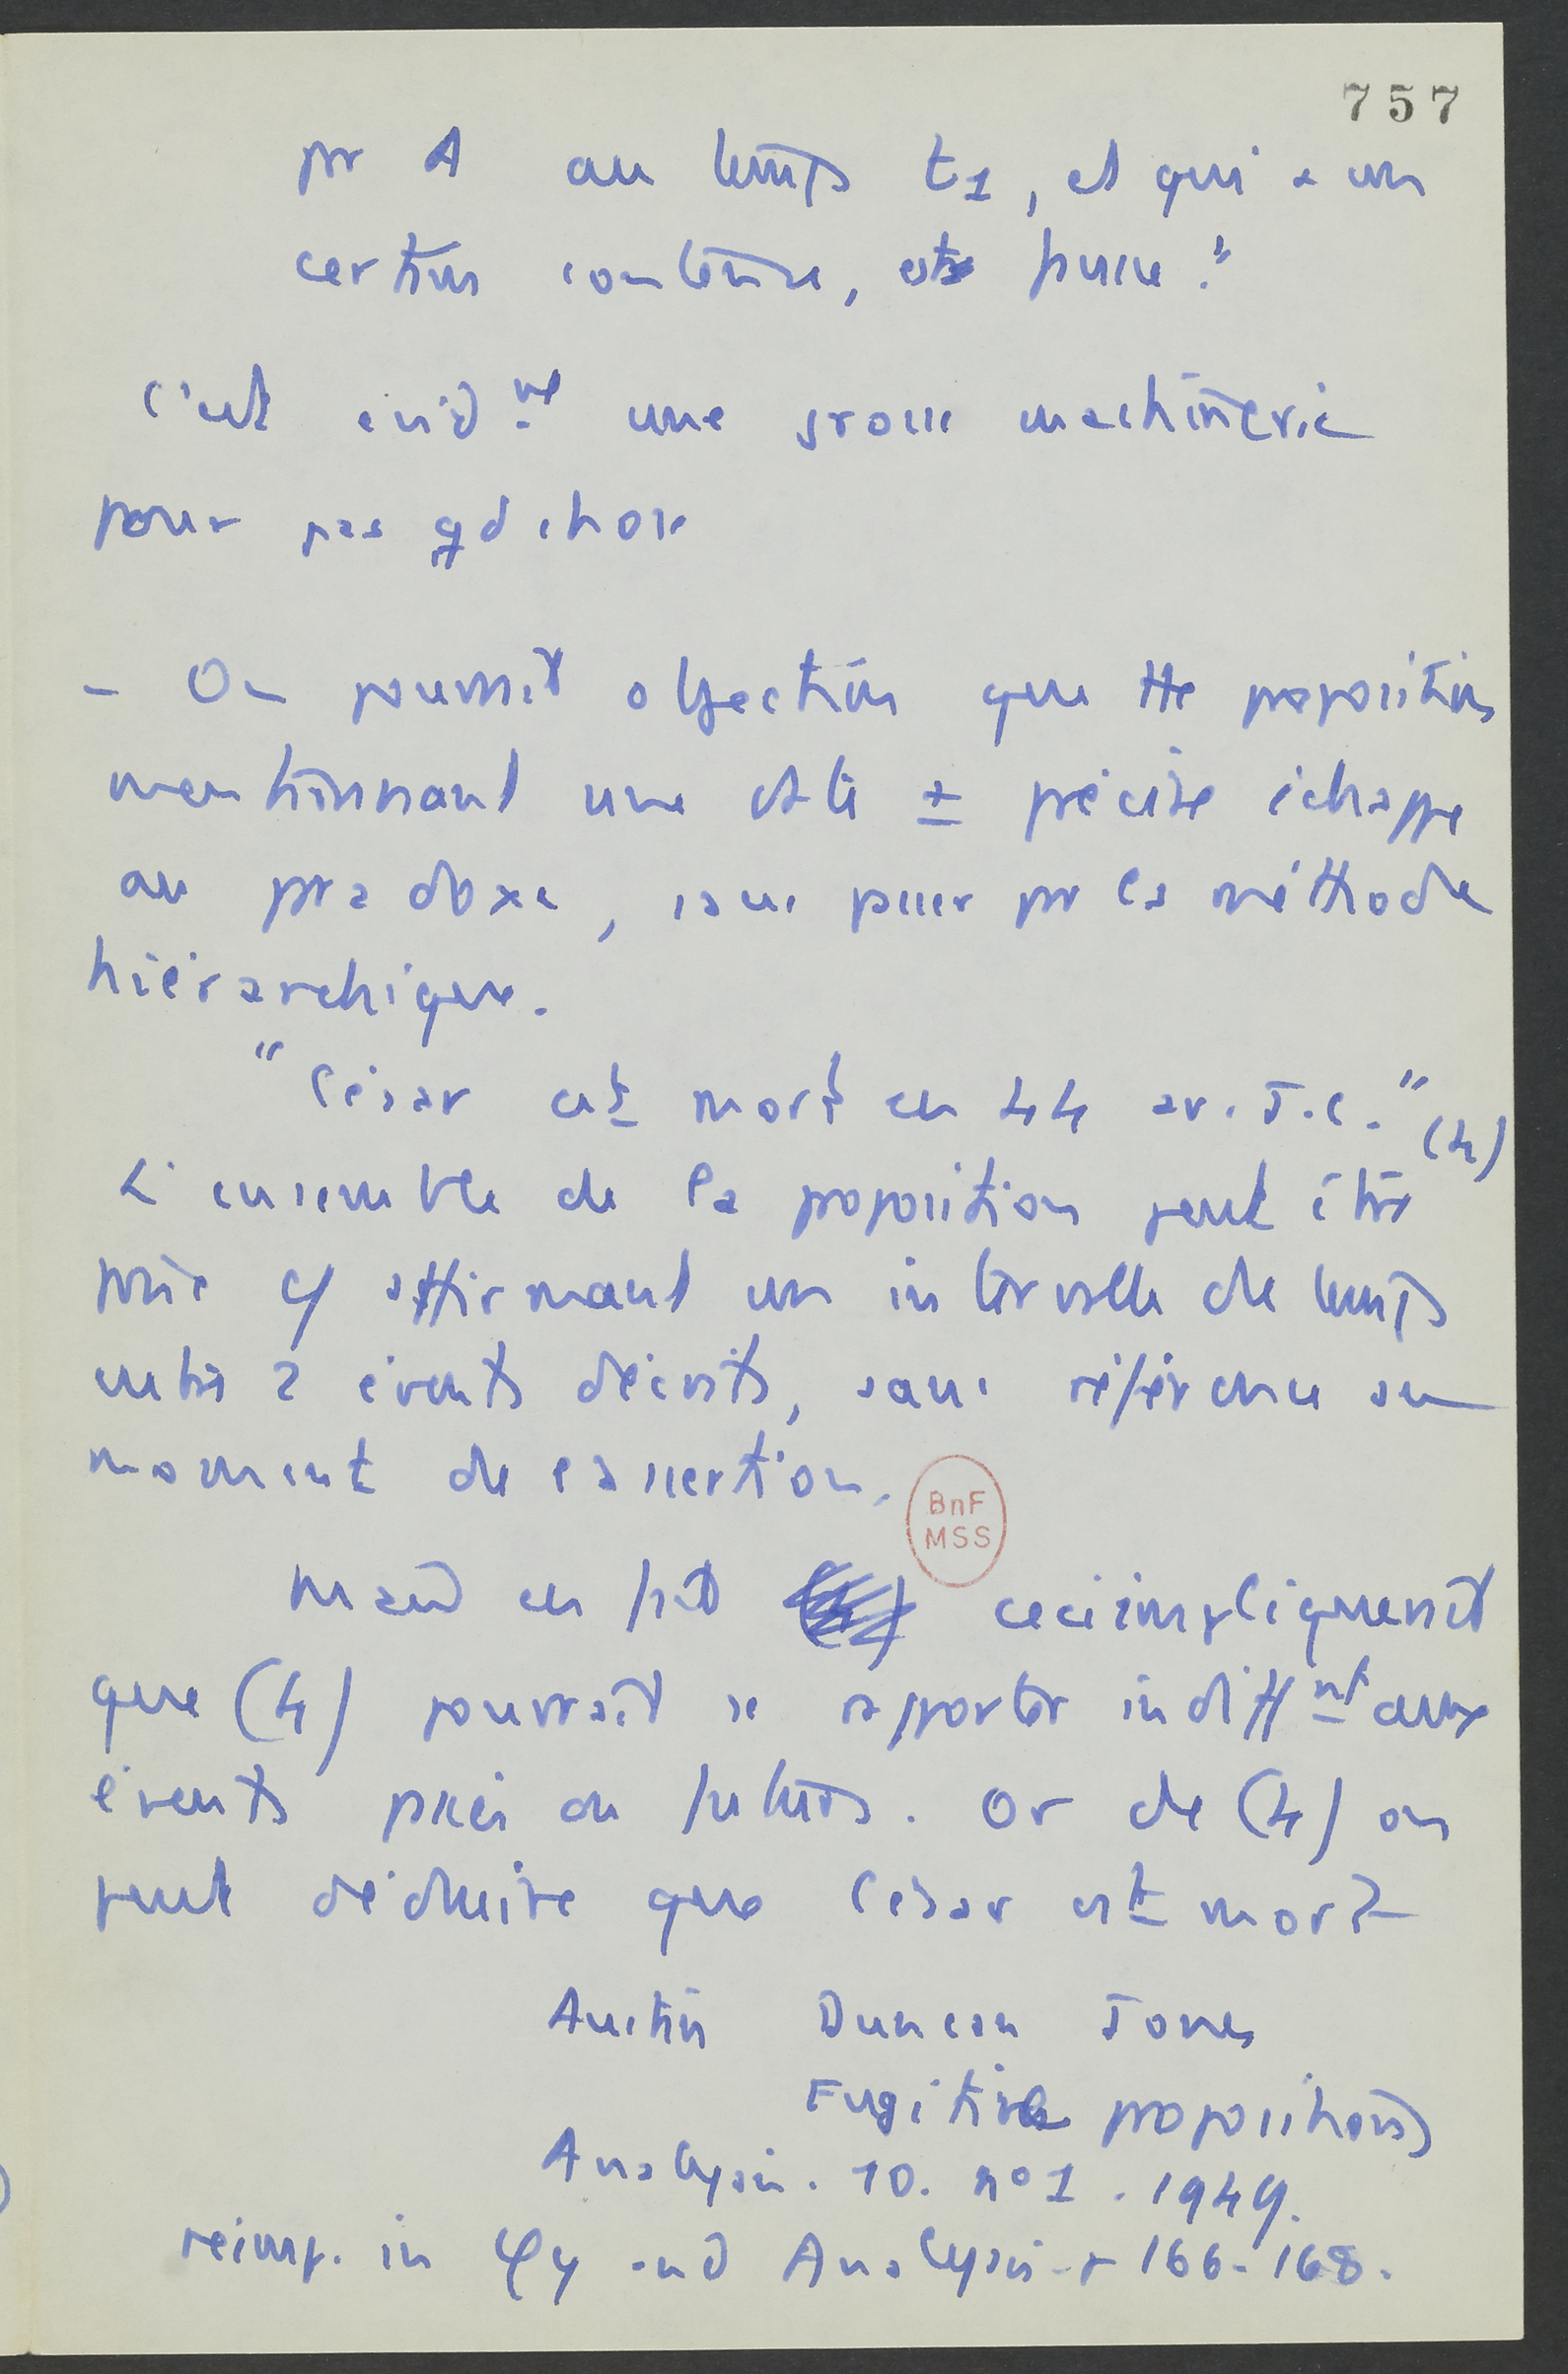 757
pr A au temps t1, et qui a un
certain contenu, est passée."
C'est évid.mt une grosse machinerie
pour pas gd chose
- On pourrait objecter que tte proposition
mentionnant une date ± précise échappe
au paradoxe, sans passer pr la méthode
hiérarchique.
"César est mort en 44 av. J.C." (4)
L'ensemble de la proposition peut être
prise cf affirmant un intervalle de temps
entre 2 évents décrits, sans référence au
moment de l'assertion.
BnF
MSS
Mais en fait ceci impliquerait
que (4) pourrait se rapporter indiff nt aux
évents passés ou futurs. Or de (4) on
peut déduire que César est mort
Austin Duncan Jones
Fugitive propositions
Analysis. 10. no 1. 1949.
reimp. in φy and Analysis. p 166-168.